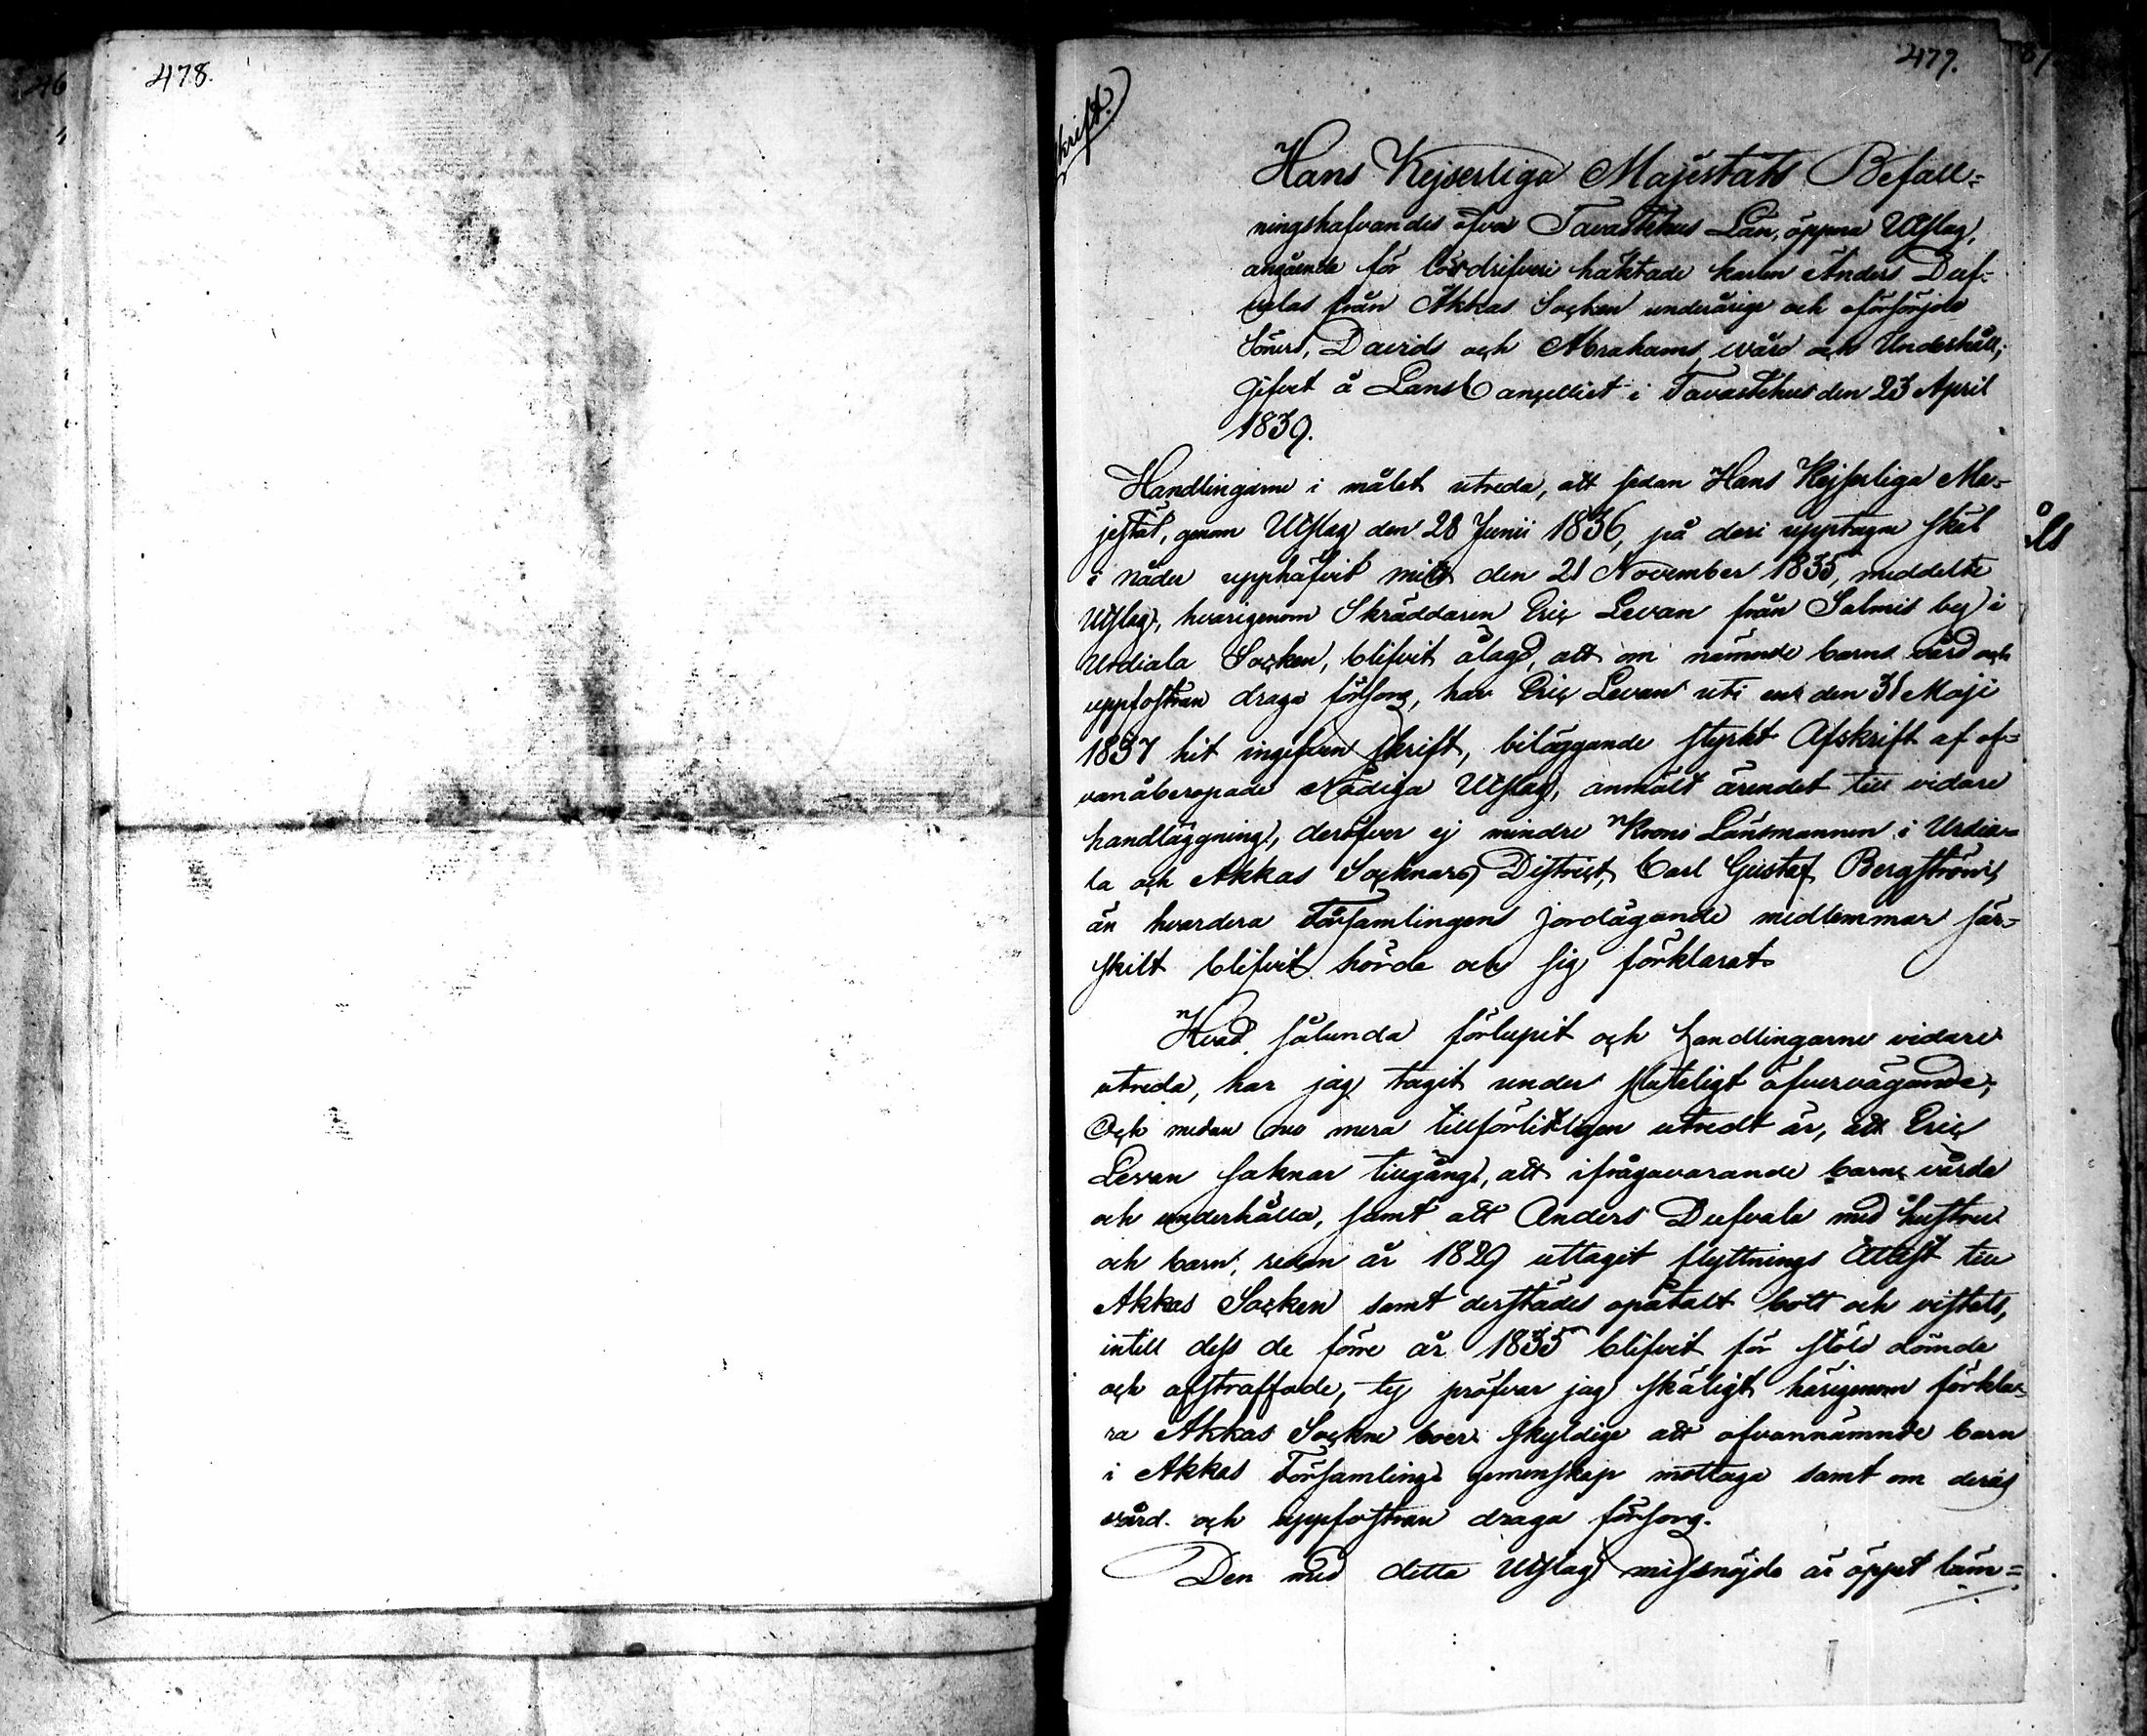 478.
479.
krift.
Hans Kejserliga Majestäts Befall=
ningshafvandes öfver Tavastehus Län, öppna Utslag,
angående för lösdrifveri häktade karlen Anders Duf-
valas från Akkas Socken underårige och oförsörjde
Söners, Davids och Abrahams, vård och Underhåll;
Gifvet å LandsCancelliet i Tavastehus den 23 April
1839.
Handlingarne i målet utreda, att sedan Hans Kejserliga Ma-
jestät, genom Utslag den 28 Junii 1836, på deri upptagna skäl
i Nåder upphäfvit mitt den 21 November 1835, meddelte
Utslag, hvarigenom Skräddaren Eric Levan från Salmis by i
Urdiala Socken, blifvit ålagd, att om nämnde barns vård och
uppfostran draga försorg, har Eric Levan uti en den 31 Maji
1837 hit ingifven skrift, biläggande styrkt Afskrift af of-
vanåberopade Nådiga Utslag, anmält ärendet till vidare
handläggning, deröfver ej mindre Krono Länsmannen i Urdia=
la och Akkas Socknars District, Carl Gustaf Bergström,
än hvardera Församlingens jordägande medlemmar sär-
skilt blifvit hörde och sig förklarat.
Hvad sålunda förlupit och handlingarne vidare
utreda, har jag tagit under sluteligt öfvervägande;
Och medan nu mera tillförlitligen utredt är, att Eric
Levan saknar tillgång, att ifrågavarande barn vårda
och underhålla, samt att Anders Dufvala med hustru
och barn, redan år 1829 uttagit flyttnings Attest till
Akkas Socken samt derstädes opåtalt bott och vistats,
intill dess de förre år 1835 blifvit för stöld dömde
och afstraffade, ty pröfvar jag skäligt härigenom förkla=
ra Akkas Sockne boer skyldige att ofvannämnde barn
i Akkas Församlings gemenskap mottaga samt om deras
vård och uppfostran draga försorg.
Den med detta Utslag missnöjde är öppet läm=